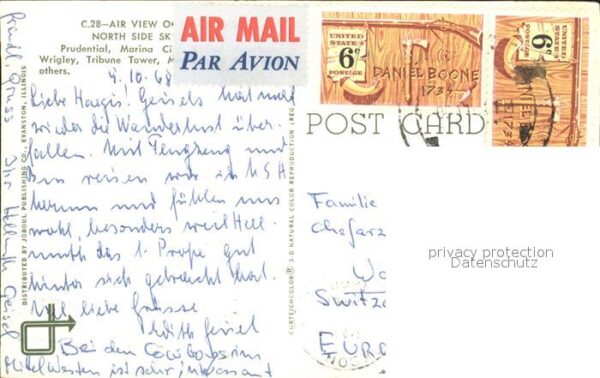 C.28—AIR VIEW O
NORTH SIDE SK
Prudential, Marina Ci
Wrigley, Tribune Tower, M
others.
AIR MAIL
PAR AVION
UNITED STATES
6c
POSTAGE
DANIEL BOONE
1734
UNITED STATES
6c
POSTAGE
DANIEL
1734
POST CARD
9.10.68
Liebe Haegis! Geisels hat mal
wieder die Wanderlust über-
fallen. Mit Flugzeug und
Bus reisen wir in USA
herum und fühlen uns
wohl, besonders weil Hell-
muth das 1. Propé gut
hinter sich gebracht hat.
Viel liebe Grüsse
Edith Geisel
Bei den Cowboys im
Mittelwesten ist sehr interessant
Gruss Ihr Hellmuth Geisel
DISTRIBUTED BY JOBOUL PUBLISHING CO., EVANSTON, ILLINOIS
CURTEICHCOLOR® 3-D NATURAL COLOR REPRODUCTION (REG.
Familie
Chefarz
Switze
EURO
privacy protection
Datenschutz